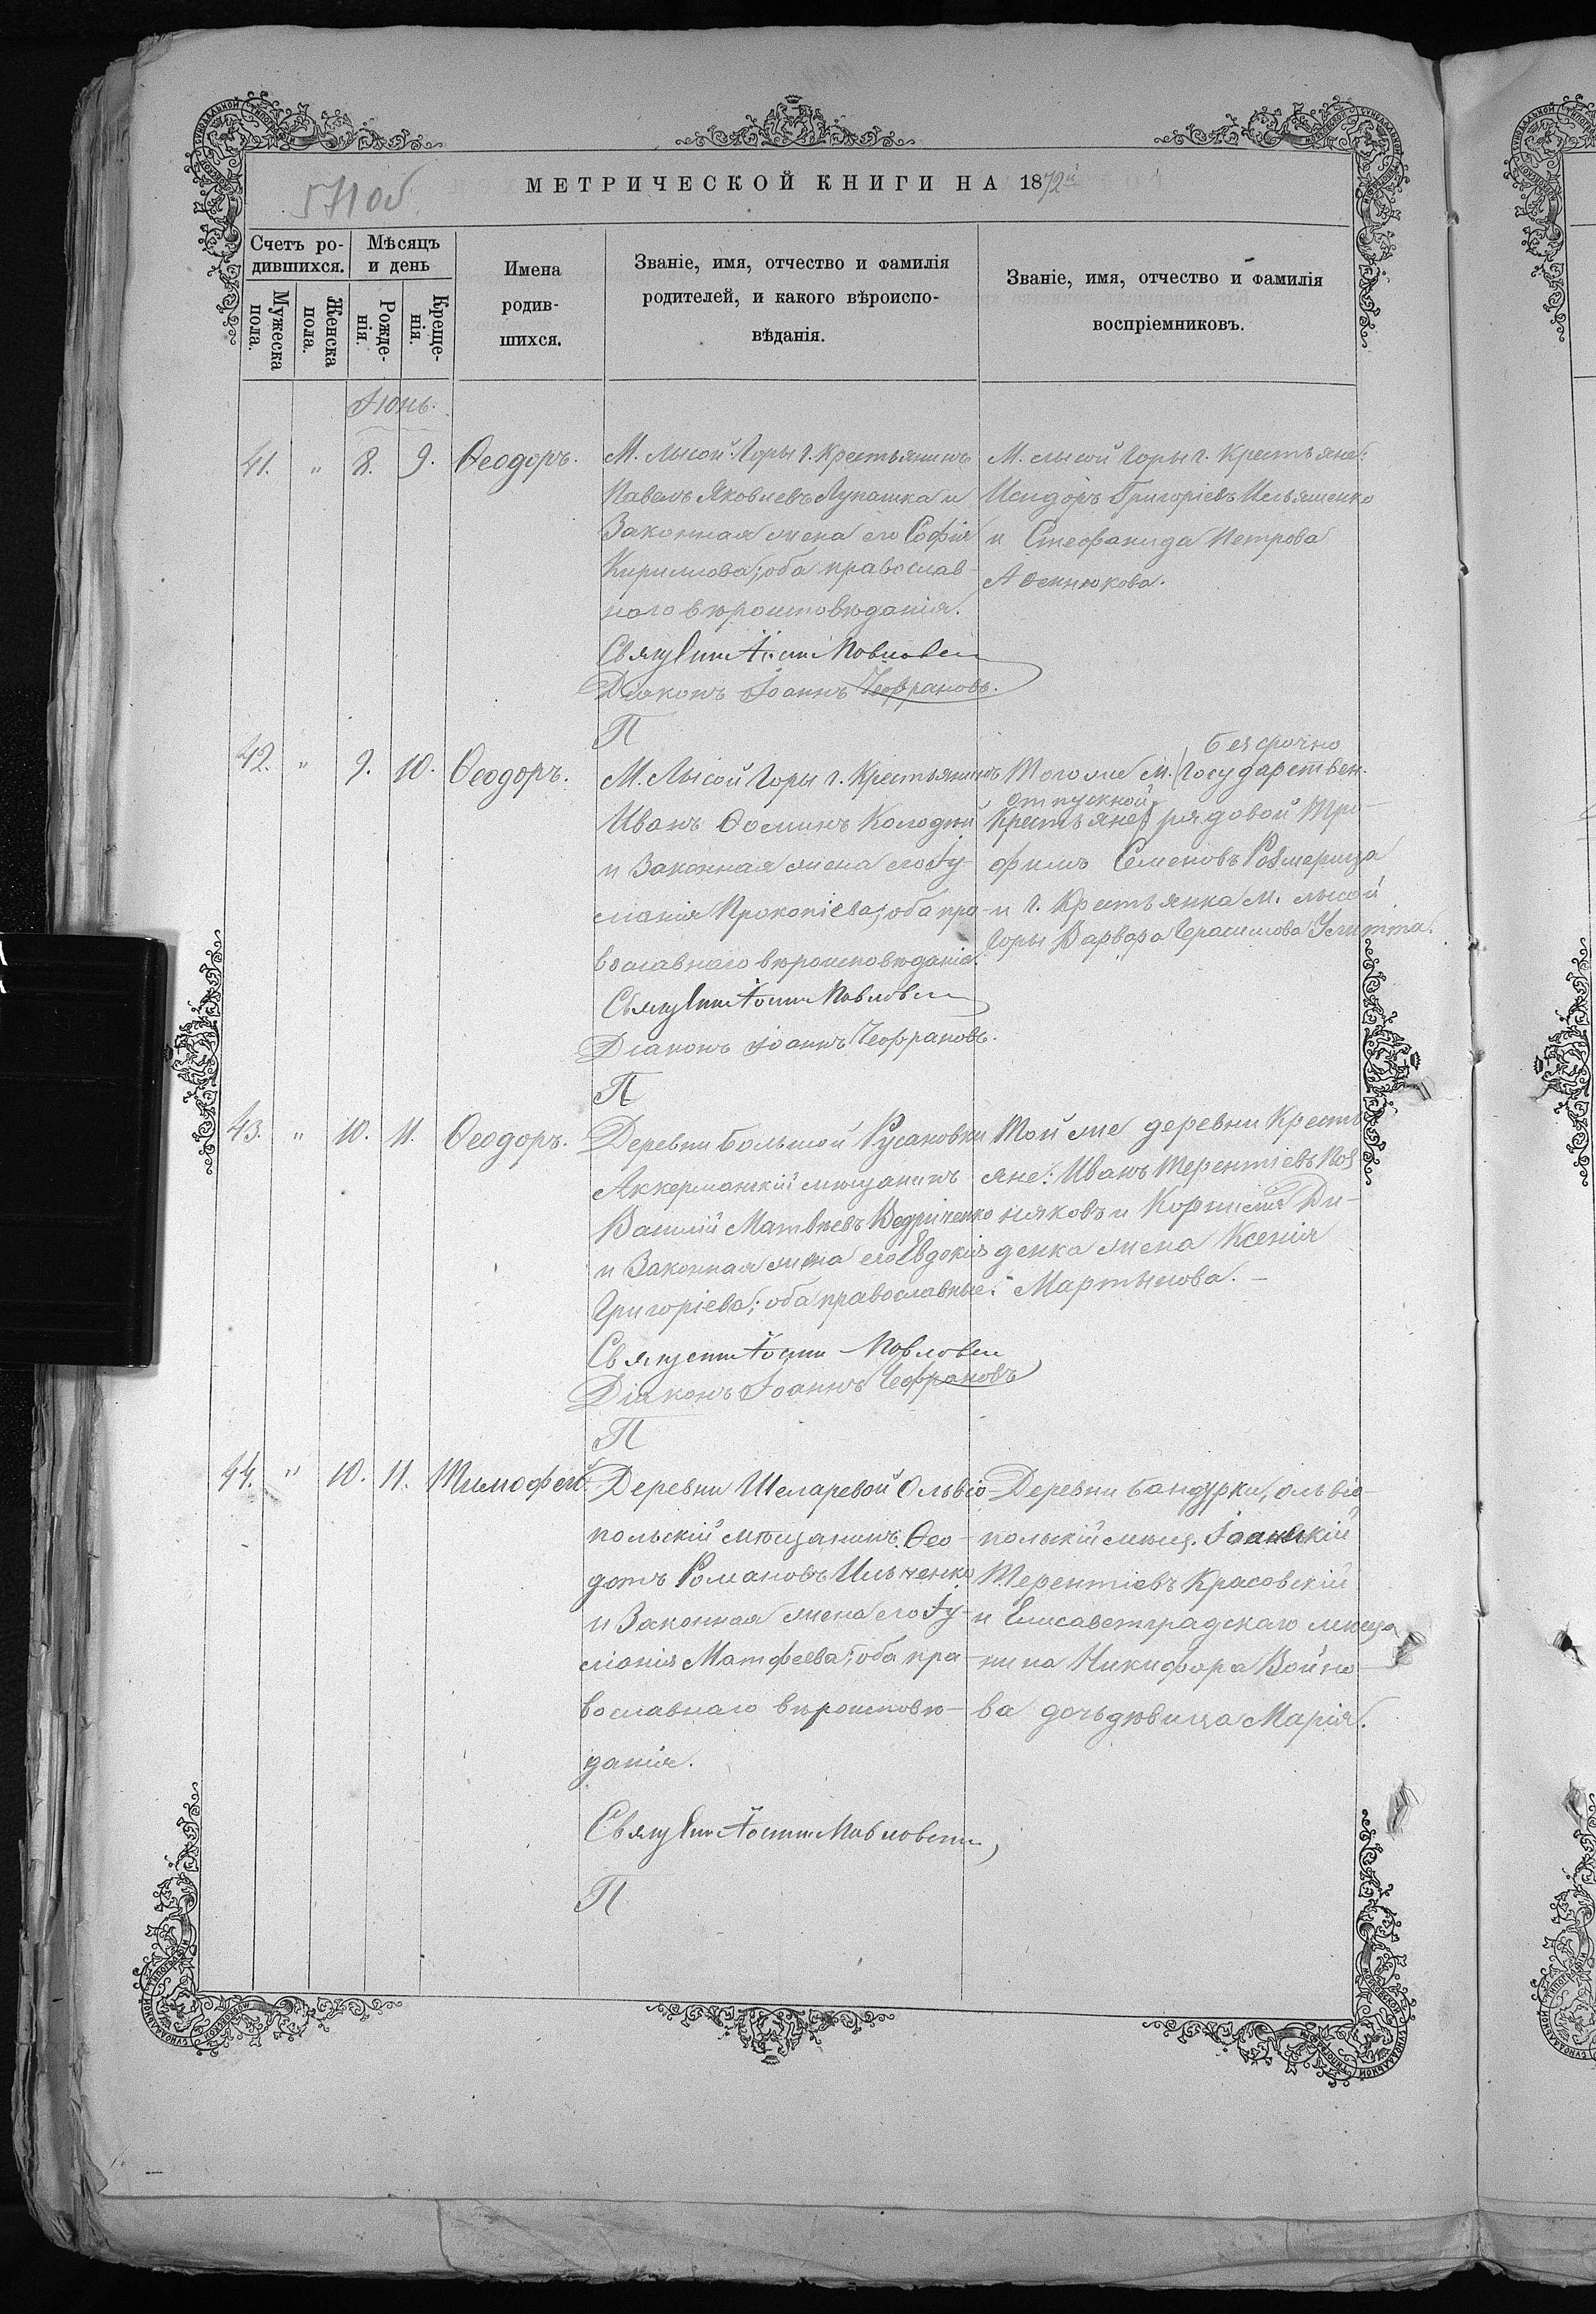 571об
МЕТРИЧЕСКОЙ КНИГИ НА 1872й
Счетъ ро-
дившихся.
Мѣсяцъ
и день
Мужеска
пола.
Женска
пола.
Рожде-
нія.
Креще-
нія.
Имена
родив-
шихся.
Званіе, имя, отчество и фамилія
родителей, и какого вѣроиспо-
вѣданія.
Званіе, имя, отчество и фамилія
воспріемниковъ.
Іюнь.
41. " 8. 9. Ѳеодоръ.
М. Лысой Горы г. Крестьянинъ
Павелъ Яковлевъ Лупашка и
Законная жена его Софія
Кириллова; оба православ-
наго вѣроисповѣданія.
Діаконъ Іоаннъ Чефрановъ.
П
М. Лысой Горы г. Крестьяне:
Исидоръ Григоріевъ Ильяшенко
и Стефанида Петрова
42. " 9. 10. Ѳеодоръ.
М. Лысой Горы г. Крестьянинъ
Иванъ Ѳоминъ Колодій
и Законная жена его Іу-
ліанія Прокопіева; оба пра-
вославнаго вѣроисповѣданія.
Діаконъ Іоаннъ Чефрановъ.
П
безсрочно
Того же М. Государствен.
отпускной
Крестьяне рядовой Тро-
фимъ Семеновъ
и г. Крестьянка М. Лысой
Горы Варвара Герасимова
43. " 10. 11. Ѳеодоръ.
Деревни Большой Русановки
Аккерманскій мѣщанинъ
Василій Матвѣевъ Ведриченко
и Законная жена его Евдокія
Григоріева; оба православные.
Діаконъ Іоаннъ Чефрановъ
П
Той же деревни Кресть
яне: Иванъ Терентіевъ Поз
няковъ и Корнилія Ди-
денка жена Ксенія
Мартынова.
44. " 10. 11. Тимофей.
Деревни Шеларевой Ольвіо-
польскій мѣщанинъ Ѳео-
дотъ Романовъ Ильченко
и Законная жена его Іу-
ліанія Матфеева; оба пра-
вославнаго вѣроисповѣ-
данія.
П
Деревни Бандурки, Ольвіо-
польскій мѣщ.
Терентіевъ Красовскій
и Елисаветградскаго мѣща
нина Никифора Войно-
ва дочь дѣвица Марія.